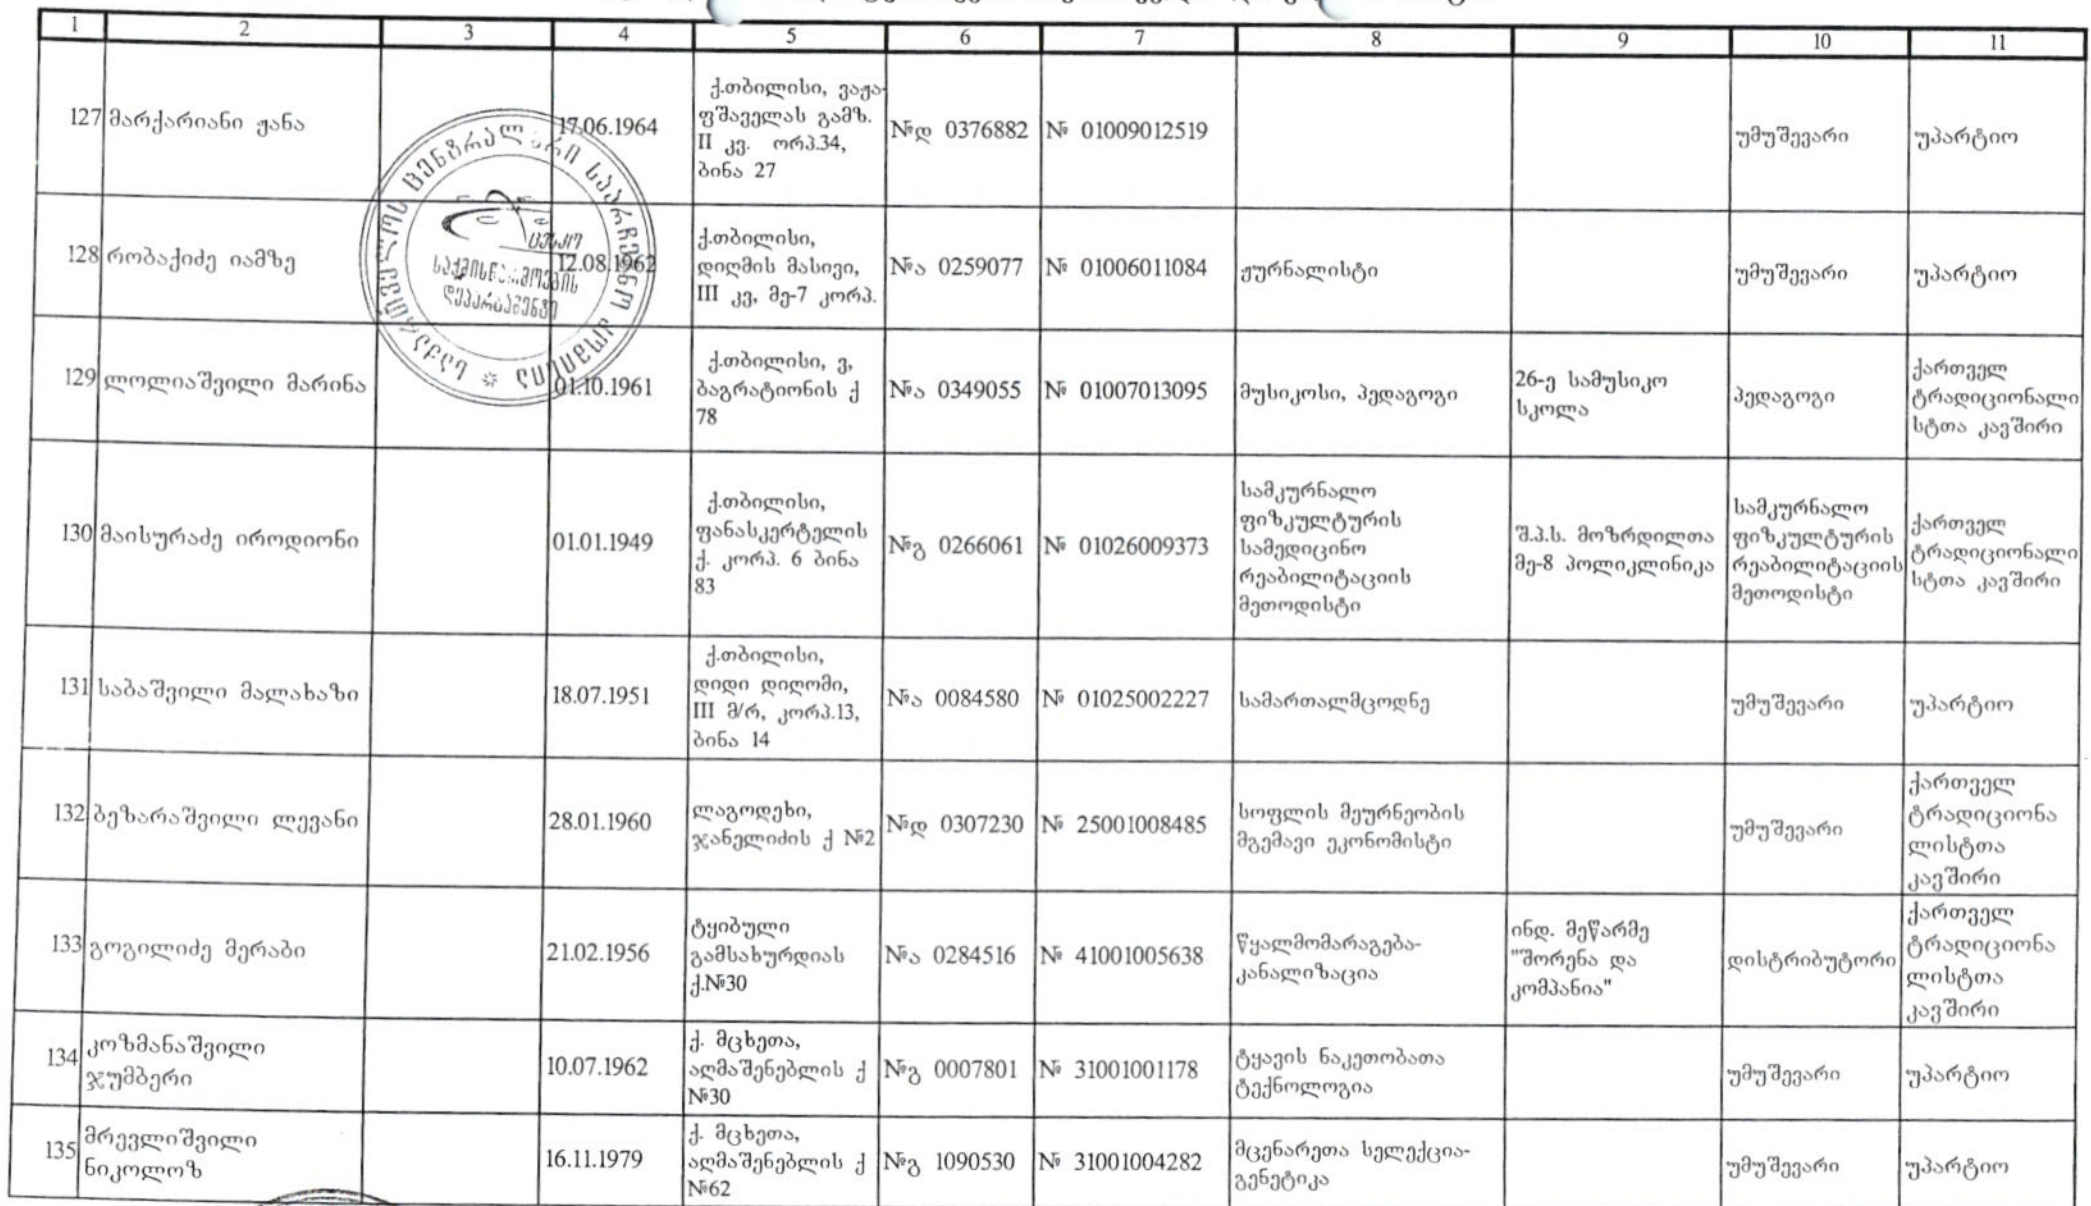 1 2 3 4 5 6 7 8 9 10 11
127 მარქარიანი ჟანა 17.06.1964
ქ.თბილისი, ვაჟა-
ფშაველას გამზ.
II კვ. ორპ.34,
ბინა 27
№დ 0376882 № 01009012519 უმუშევარი უპარტიო
128 რობაქიძე იამზე 12.08.1962
ქ.თბილისი,
დიღმის მასივი,
III კვ, მე-7 კორპ.
№ა 0259077 № 01006011084 ჟურნალისტი უმუშევარი უპარტიო
129 ლოლიაშვილი მარინა 01.10.1961
ქ.თბილისი, ვ,
ბაგრატიონის ქ
78
№ა 0349055 № 01007013095 მუსიკოსი, პედაგოგი
26-ე სამუსიკო
სკოლა
პედაგოგი
ქართველ
ტრადიციონალი
სტთა კავშირი
130 მაისურაძე იროდიონი 01.01.1949
ქ.თბილისი,
ფანასკერტელის
ქ. კორპ. 6 ბინა
83
№გ 0266061 № 01026009373
სამკურნალო
ფიზკულტურის
სამედიცინო
რეაბილიტაციის
მეთოდისტი
შ.პ.ს. მოზრდილთა
მე-8 პოლიკლინიკა
სამკურნალო
ფიზკულტურის
რეაბილიტაციის
მეთოდისტი
ქართველ
ტრადიციონალი
სტთა კავშირი
131 საბაშვილი მალახაზი 18.07.1951
ქ.თბილისი,
დიდი დიღომი,
III მ/რ, კორპ.13,
ბინა 14
№ა 0084580 № 01025002227 სამართალმცოდნე უმუშევარი უპარტიო
132 ბეზარაშვილი ლევანი 28.01.1960
ლაგოდეხი,
ჯანელიძის ქ №2
№დ 0307230 № 25001008485
სოფლის მეურნეობის
მგემავი ეკონომისტი
უმუშევარი
ქართველ
ტრადიციონა
ლისტთა
კავშირი
133 გოგილიძე მერაბი 21.02.1956
ტყიბული
გამსახურდიას
ქ.№30
№ა 0284516 № 41001005638
წყალმომარაგება-
კანალიზაცია
ინდ. მეწარმე
"შორენა და
კომპანია"
დისტრიბუტორი
ქართველ
ტრადიციონა
ლისტთა
კავშირი
134 კოზმანაშვილი
ჯუმბერი
10.07.1962
ქ. მცხეთა,
აღმაშენებლის ქ
№30
№გ 0007801 № 31001001178
ტყავის ნაკეთობათა
ტექნოლოგია
უმუშევარი უპარტიო
135 მრევლიშვილი
ნიკოლოზ
16.11.1979
ქ. მცხეთა,
აღმაშენებლის ქ
№62
№გ 1090530 № 31001004282
მცენარეთა სელექცია-
გენეტიკა
უმუშევარი უპარტიო